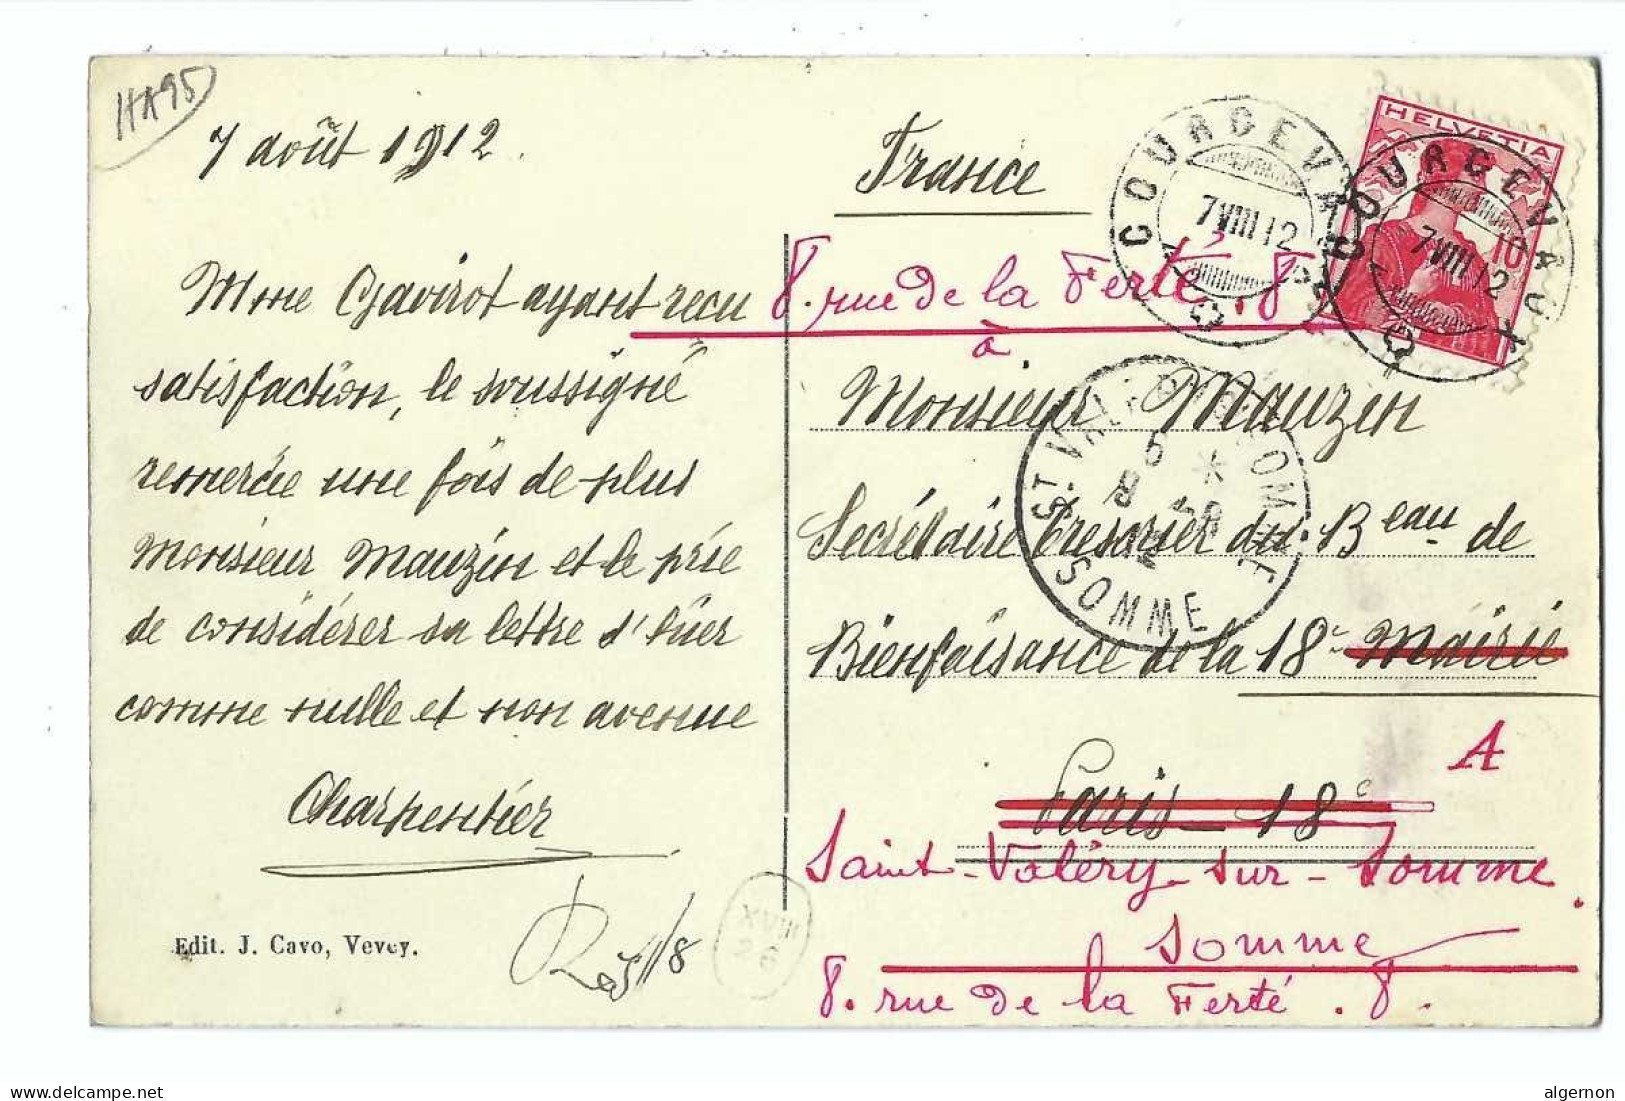 HA95
7 août 1912.
Mme Gavirot ayant recu
satisfaction, le soussigné
remercie une fois de plus
Monsieur Mauzin et le prie
de considérer sa lettre d'hier
comme nulle et non avenue
Charpentier
Edit. J. Cavo, Vevey.
XVIII
France
COURGEVAUX
7 VIII 12
HELVETIA
10
COURGEVAUX
7 VIII 12
8. rue de la Ferté. 8
à
Monsieur Mauzin
Secrétaire trésorier du Beau de
Bienfaisance de la 18e Mairie
ST VALERY-S-SOMME
SOMME
A
Paris - 18e
Saint-Valéry-sur-Somme.
Somme
8. rue de la Ferté. 8.
www.delcampe.net
algernon